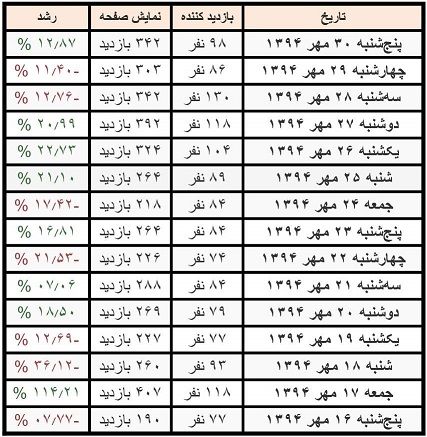 تاریخ بازدید کننده نمایش صفحه رشد
پنج‌شنبه ۳۰ مهر ۱۳۹۴ ۹۸ نفر ۳۴۲ بازدید ۱۲٫۸۷ %
چهارشنبه ۲۹ مهر ۱۳۹۴ ۸۶ نفر ۳۰۳ بازدید -۱۱٫۴۰ %
سه‌شنبه ۲۸ مهر ۱۳۹۴ ۱۳۰ نفر ۳۴۲ بازدید -۱۲٫۷۶ %
دوشنبه ۲۷ مهر ۱۳۹۴ ۱۱۸ نفر ۳۹۲ بازدید ۲۰٫۹۹ %
یکشنبه ۲۶ مهر ۱۳۹۴ ۱۰۴ نفر ۳۲۴ بازدید ۲۲٫۷۳ %
شنبه ۲۵ مهر ۱۳۹۴ ۸۹ نفر ۲۶۴ بازدید ۲۱٫۱۰ %
جمعه ۲۴ مهر ۱۳۹۴ ۸۴ نفر ۲۱۸ بازدید -۱۷٫۴۲ %
پنج‌شنبه ۲۳ مهر ۱۳۹۴ ۸۴ نفر ۲۶۴ بازدید ۱۶٫۸۱ %
چهارشنبه ۲۲ مهر ۱۳۹۴ ۷۴ نفر ۲۲۶ بازدید -۲۱٫۵۳ %
سه‌شنبه ۲۱ مهر ۱۳۹۴ ۸۴ نفر ۲۸۸ بازدید ۰۷٫۰۶ %
دوشنبه ۲۰ مهر ۱۳۹۴ ۷۹ نفر ۲۶۹ بازدید ۱۸٫۵۰ %
یکشنبه ۱۹ مهر ۱۳۹۴ ۷۷ نفر ۲۲۷ بازدید -۱۲٫۶۹ %
شنبه ۱۸ مهر ۱۳۹۴ ۹۳ نفر ۲۶۰ بازدید -۳۶٫۱۲ %
جمعه ۱۷ مهر ۱۳۹۴ ۱۱۸ نفر ۴۰۷ بازدید ۱۱۴٫۲۱ %
پنج‌شنبه ۱۶ مهر ۱۳۹۴ ۷۷ نفر ۱۹۰ بازدید -۰۷٫۷۷ %